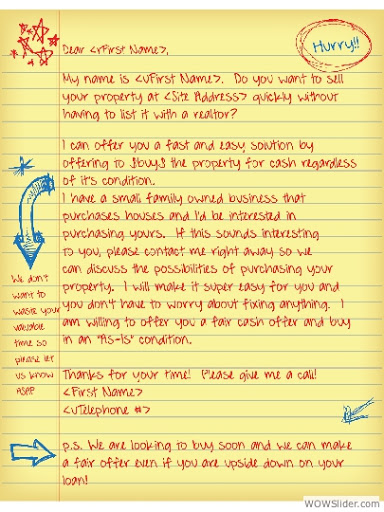 Hurry!!
Dear <rFirst Name>,
My name is <uFirst Name>. Do you want to sell
your property at <Site Address> quickly without
having to list it with a realtor?
I can offer you a fast and easy solution by
offering to $buy$ the property for cash regardless
of it's condition.
I have a small family owned business that
purchases houses and I'd be interested in
purchasing yours. If this sounds interesting
to you, please contact me right away so we
can discuss the possibilities of purchasing your
property. I will make it super easy for you and
you don't have to worry about fixing anything. I
am willing to offer you a fair cash offer and buy
in an "As-Is" condition.
We don't
want to
waste your
valuable
time so
please let
us know
ASAP
Thanks for your time! Please give me a call!
<First Name>
<uTelephone #>
p.s. We are looking to buy soon and we can make
a fair offer even if you are upside down on your
loan!
WOWSlider.com